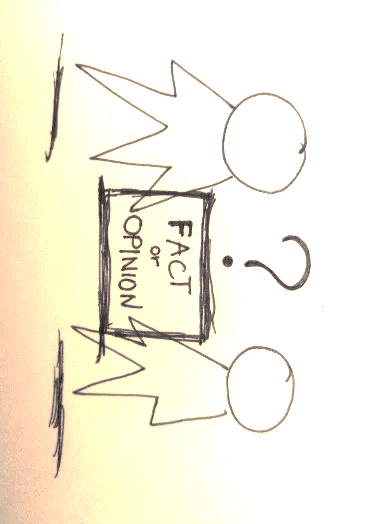 ?
FACT
or
OPINION